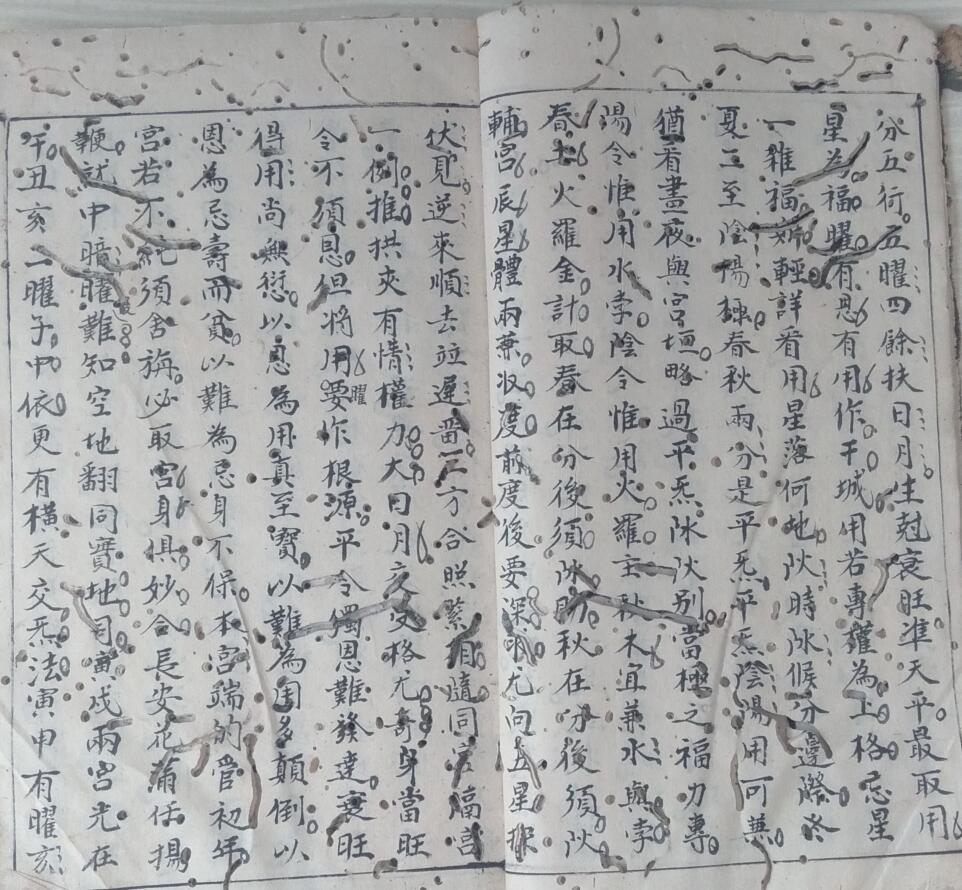 分五行五曜四餘扶日月生尅衰旺准天平最取用
星為福曜有恩有用作干城用若專權為上格忌星
一雜福輕詳看用星落何地阦時氷候分邊際冬
夏二至陰陽極春秋兩分是平炁平炁陰陽用可兼
猶看晝夜與宮垣略過平炁氷阦別當極之福力專
陽令惟用水孛陰令惟用火羅主秋木宜兼水與孛
春土火羅金計取春在分後須氷助秋在分後須阦
輔宮辰星體兩兼收度前度後要深明尤向五星探
伏見逆來順去並遲畱三方合照緊相隨同宮隔宮
一例推拱夾有情權力大日月交互格尤奇身當旺
令不須恩但將用曜要作根源平令獨恩難發達衰旺
得用尚無愆以恩為用真至寶以難為用多顛倒以
恩為忌壽而貧以難為忌身不保本宮端的管初年
宮若不純須舍旃必取宮身俱妙合長安花滿任揚
鞭就中暗曜難知空地翻同實地司寅戌兩宮光在
午丑亥二曜子中依更有橫天交炁法寅申有曜亥